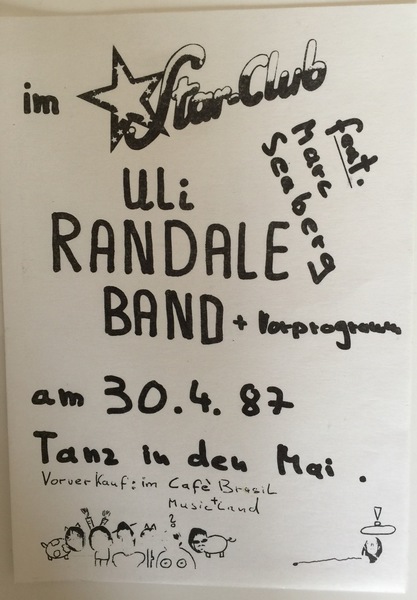 im Star-Club
feat.
Marc
Seaberg
Uli
RANDALE
BAND + Vorprogramm
am 30.4.87
Tanz in den Mai.
Vorverkauf: im Cafè Brasil
+
Music Land
?